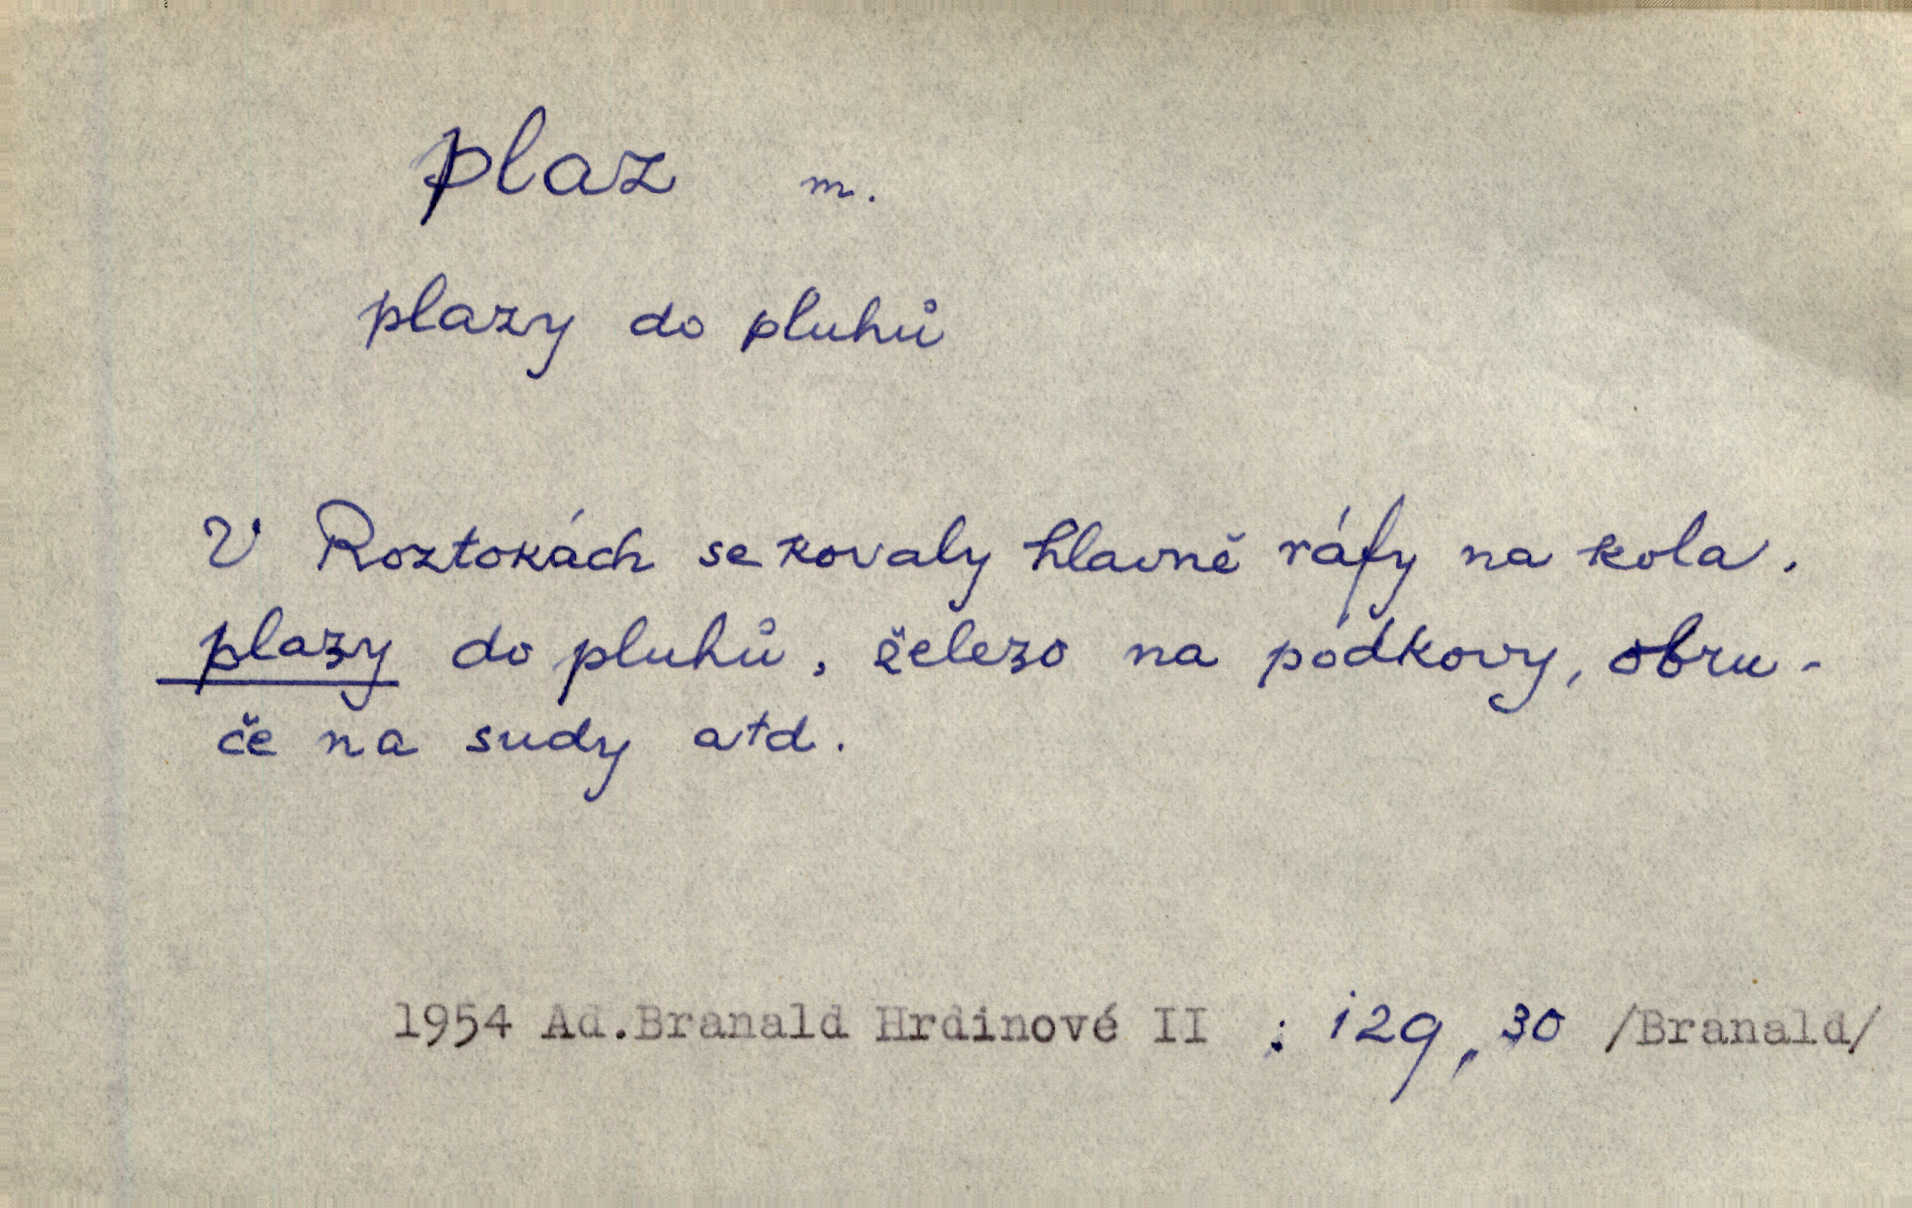 plaz m.
plazy do pluhů
V Roztokách se kovaly hlavně ráfy na kola,
plazy do pluhů, železo na podkovy, obru-
če na sudy atd.
1954 Ad.Branald Hrdinové II : 129, 30 /Branald/